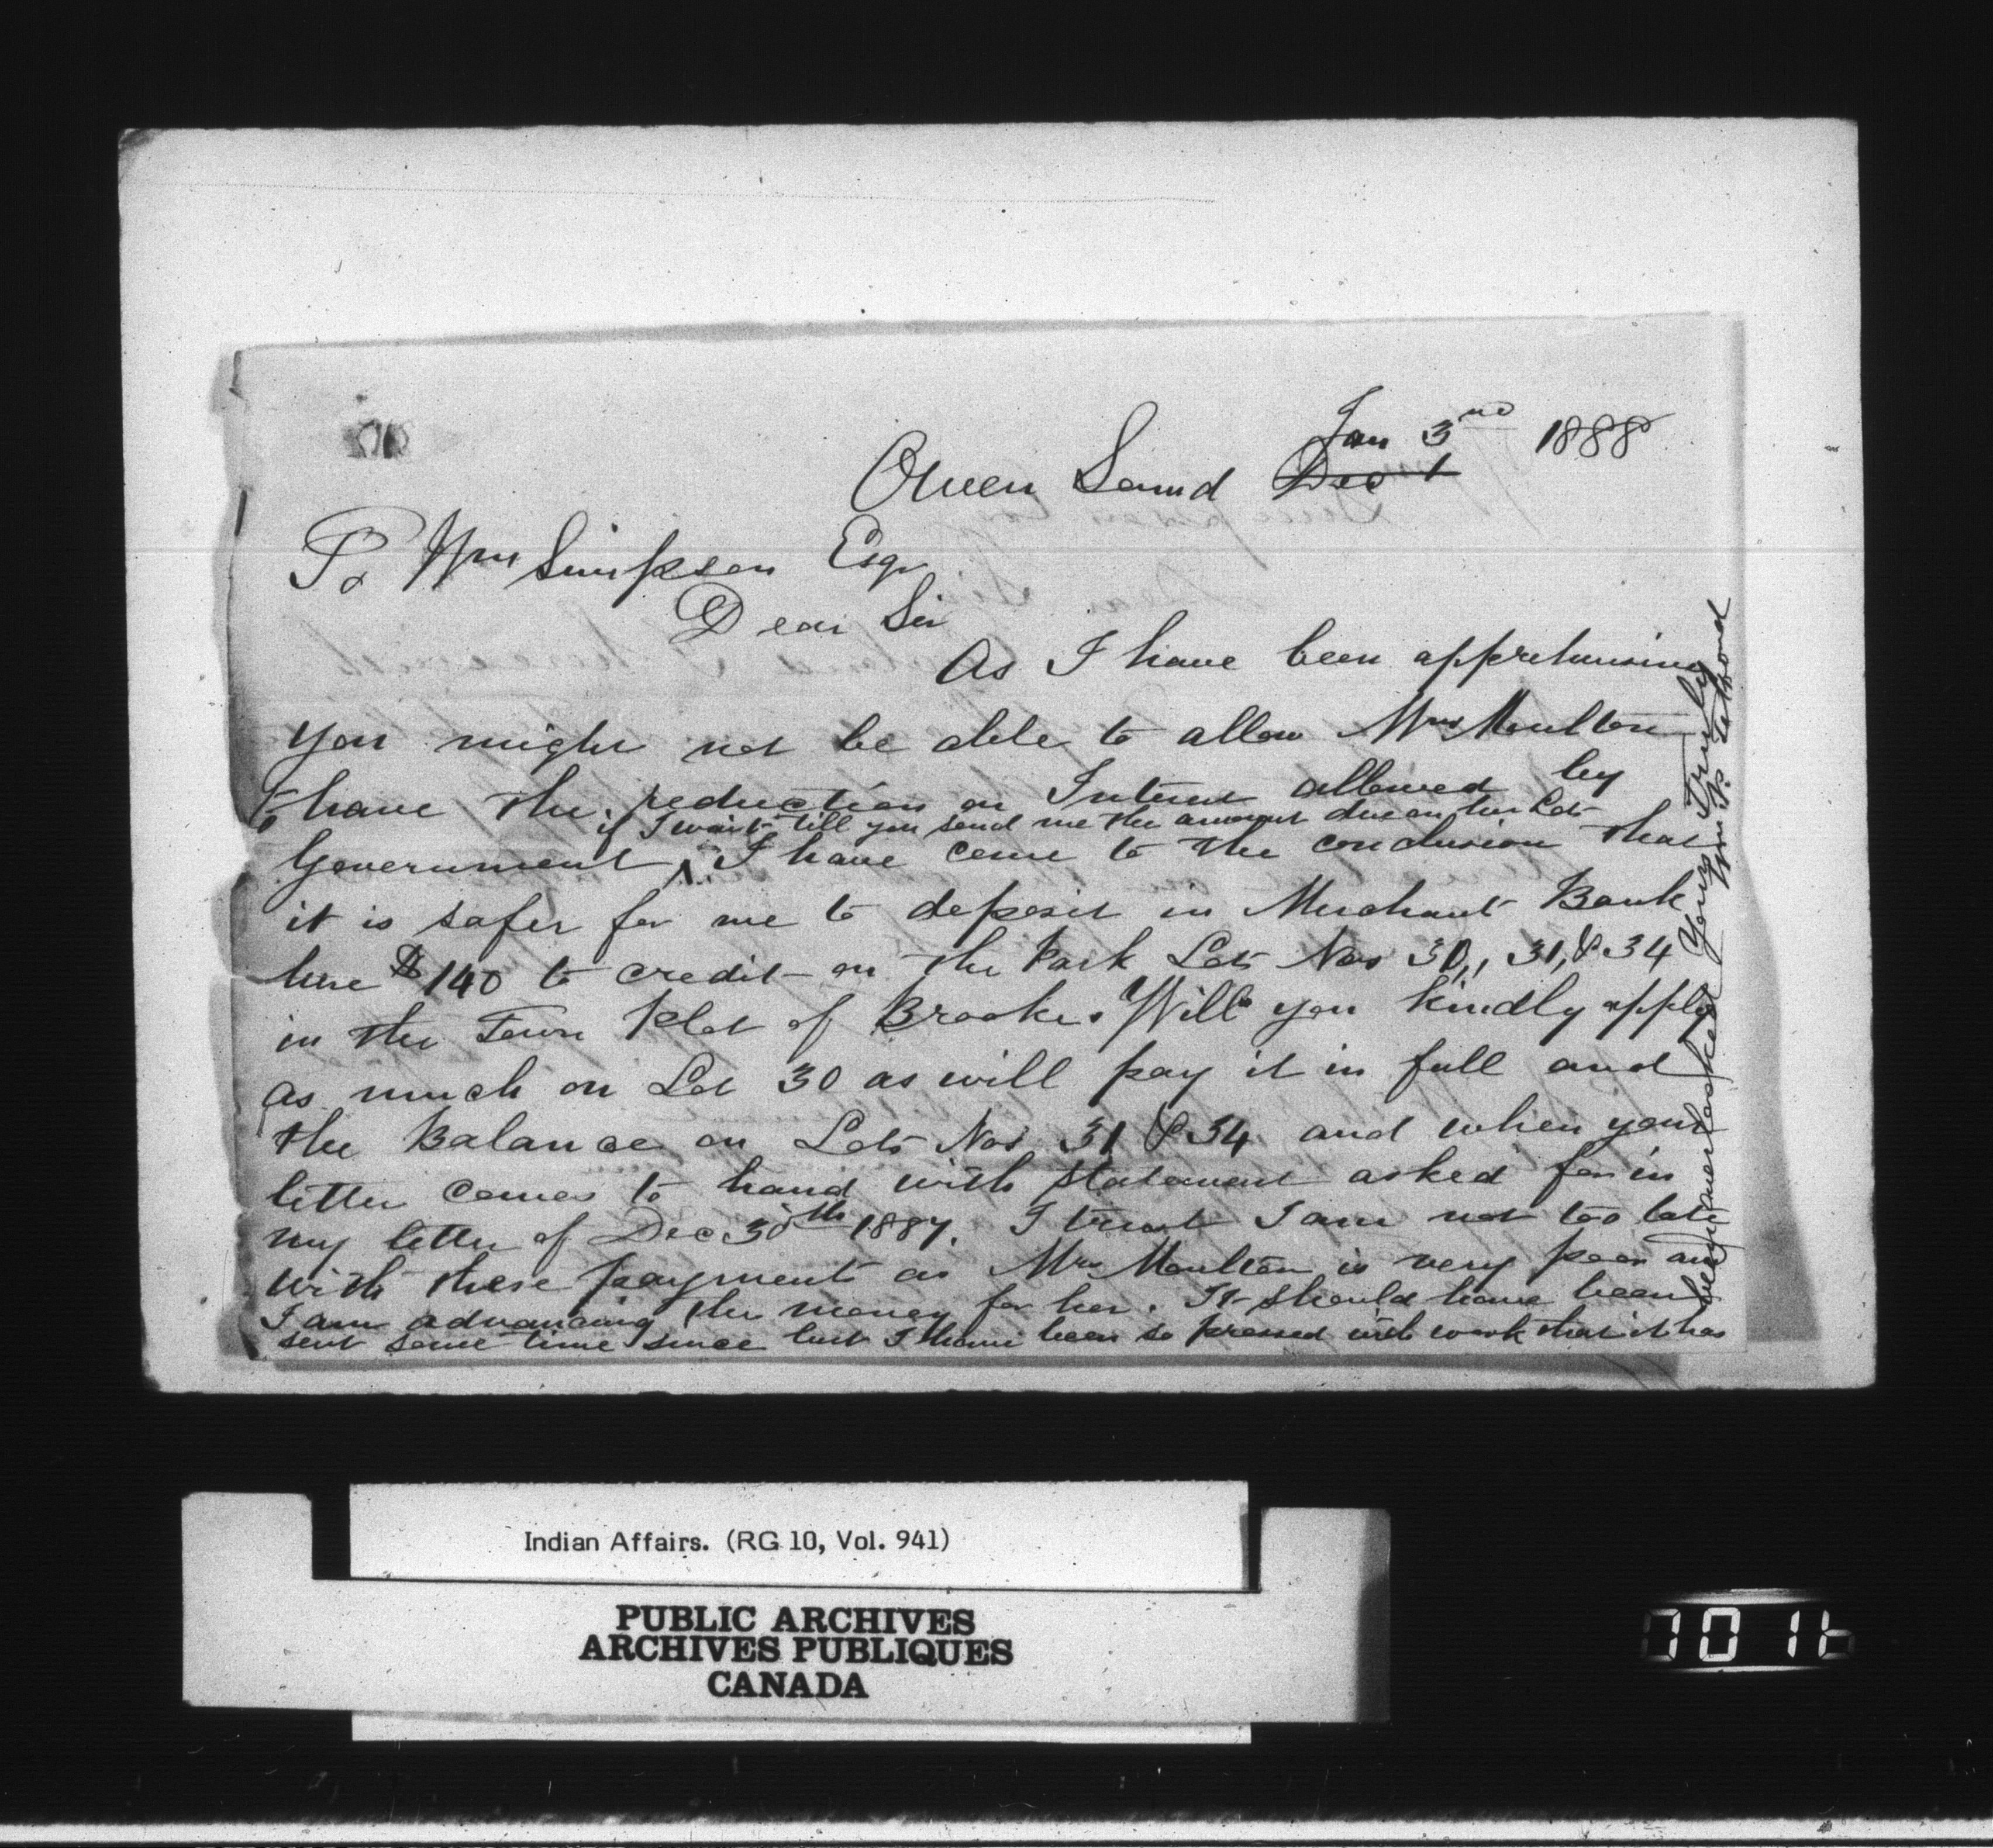 Jan 3nd 1888
Owen Sound Dec 1
To Wm Simpson Esqr
Dear Sir
As I have been apprehensive
you might not be able to allow Mrs Moulton
to have the reduction on Interest allowed by
if I wait till you send me the amount due on her Lots
Government I have come to the conclusion that
it is safer for me to deposit in Merchant Bank
here $140 to credit on the Park Lots Nos 30,, 31, & 34
in the Town Plot of Brooke. Will you kindly apply
as much on Lot 30 as will pay it in full and
the Balance on Lots Nos 31 & 34 and when your
letter comes to hand with statement asked for in
my letter of Dec 30th 1887. I trust I am not too late
with these payments as Mrs Moulton is very poor and
I am advancing the money for her. It should have been
sent some time since but I have been so pressed with work that it has
been overlooked Yours Truly
Wm P.
Indian Affairs. (RG 10, Vol. 941)
PUBLIC ARCHIVES
ARCHIVES PUBLIQUES
CANADA